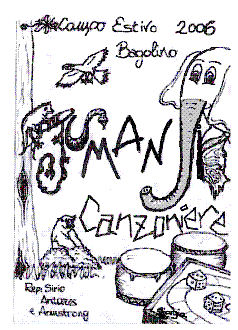 Campo Estivo 2006
Bagolino
JUMANJI
Canzoniere
Rep. Sirio
Antares
e Armstrong